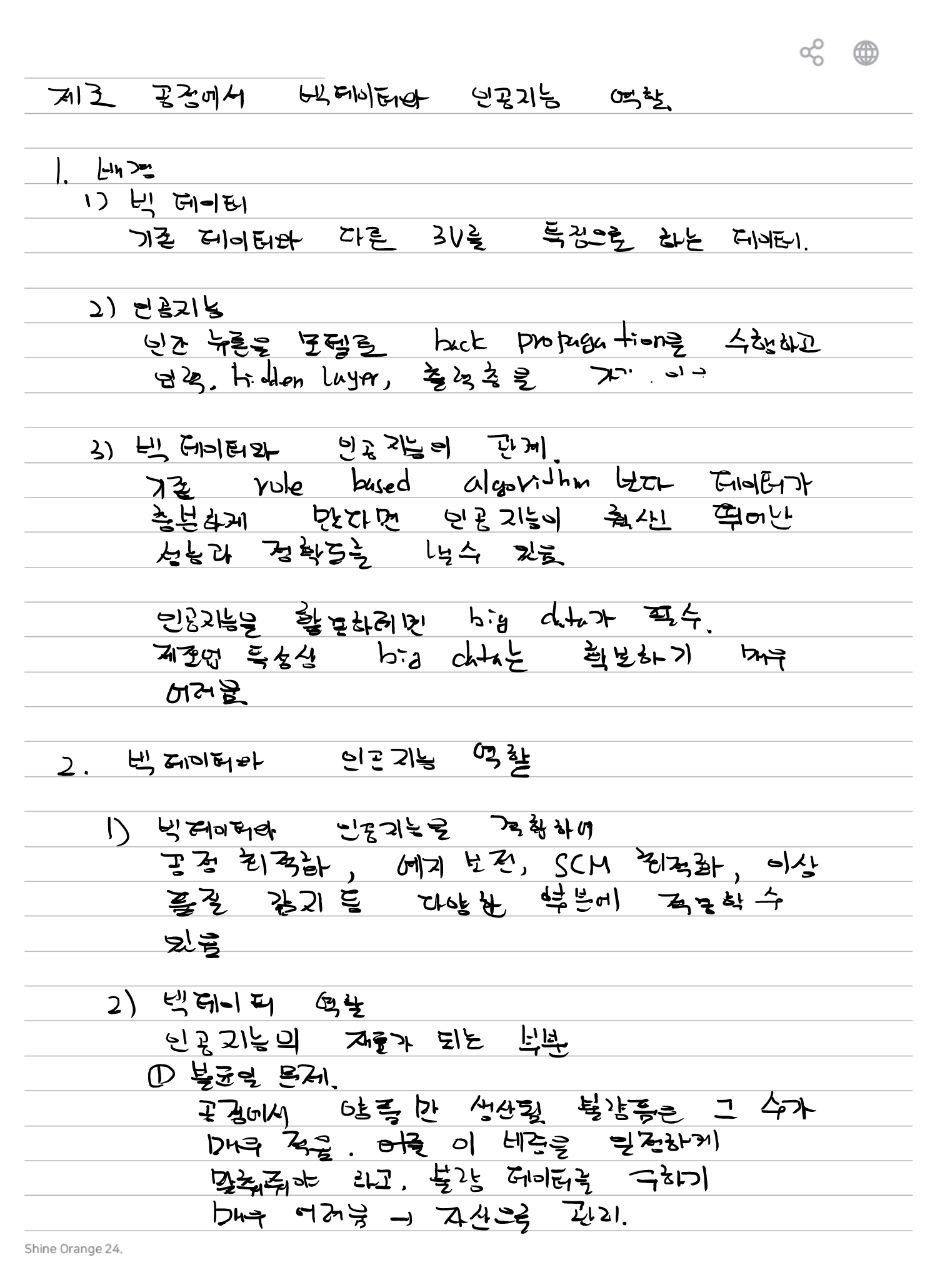 제조 공정에서 빅데이터와 인공지능 역할
1. 배경
1) 빅 데이터
기존 데이터와 다른 3V를 특징으로 하는 데이터.
2) 인공지능
인간 뉴런을 모델로 back propagation를 수행하고
입력, hidden layer, 출력층을
3) 빅 데이터와 인공지능의 관계.
기존 rule based algorithm 보다 데이터가
충분하게 많다면 인공지능이 훨씬 뛰어난
성능과 정확도를 낼수 있음
인공지능을 활용하려면 big data가 필수.
제조업 특성상 big data는 확보하기 매우
어려움
2. 빅데이터와 인공지능 역할
1) 빅데이터와 인공지능을 결합하여
공정 최적화, 예지 보전, SCM 최적화, 이상
품질 감지 등 다양한 부분에 적용할 수
있음
2) 빅데이터 역할
인공지능의 재료가 되는 부분
① 불균일 문제.
공정에서 양품만 생산됨 불량품은 그 수가
매우 적음. 이 비중을 일정하게
맞춰줘야 하고, 불량 데이터를 구하기
매우 어려움 → 자산으로 관리.
Shine Orange 24.